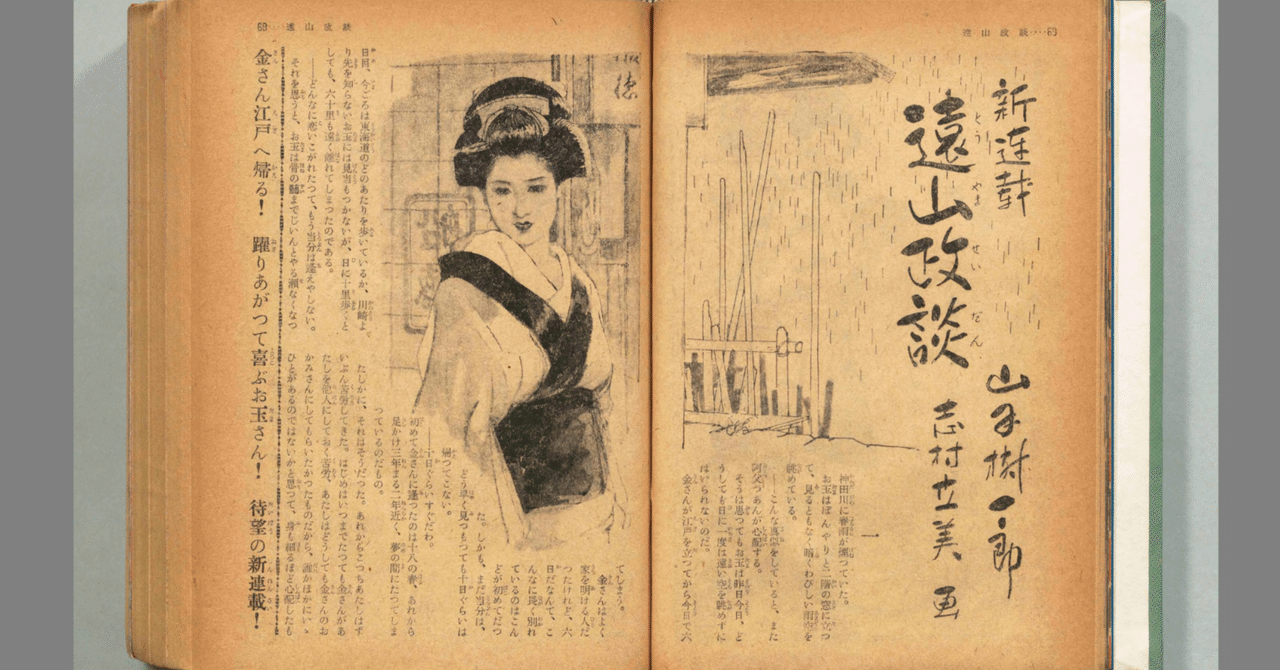 遠山政談‥‥69
新連載
遠山政談
とうやませいだん
山手樹一郎
志村立美 画
一
神田川に春雨が煙つていた。
お玉はぼんやりと二階の窓に立つ
て、見るともなく暗くわびしい雨空を
眺めている。
――こんな真似をしていると、また
阿父つあんが心配する。
そうは思つてもお玉は昨日今日、ど
うしても日に一度は遠い空を眺めずに
はいられないのだ。
金さんが江戸を立つてから今日で六
68‥‥遠山政談
日目、今ごろは東海道のどのあたりを歩いているか、川崎よ
り先を知らないお玉には見当もつかないが、日に十里歩くと
しても、六十里も遠く離れてしまつたのである。
――どんなに恋いこがれたつて、もう当分は逢えやしない。
それを思うと、お玉は骨の髄までじいんとやる瀬なくなつ
てしまう。
金さんはよく
家を明ける人だ
つたけれど、六
日だなんて、こ
んなに長く別れ
ているのはこん
どが初めてだつ
た。しかも、まだ当分は、
どう早く見つもつても十日ぐらいは
帰つてこない。
――十日ぐらいすぐだわ。
初めて金さんに逢つたのは十八の春、あれから
足かけ三年まる二年近く、夢の間にたつてしま
つているのだもの。
たしかに、それはそうだつた。あれからこつちあたしはず
いぶん苦労してきた。はじめはいつまでたつても金さんがあ
たしを他人にしておく苦労、あたしはどうしても金さんのお
かみさんにしてもらいたかつたものだから、誰かほかにいい
ひとがあるのではないかと思つて、身も細るほど心配したも
金さん江戸へ帰る! 躍りあがつて喜ぶお玉さん! 待望の新連載!